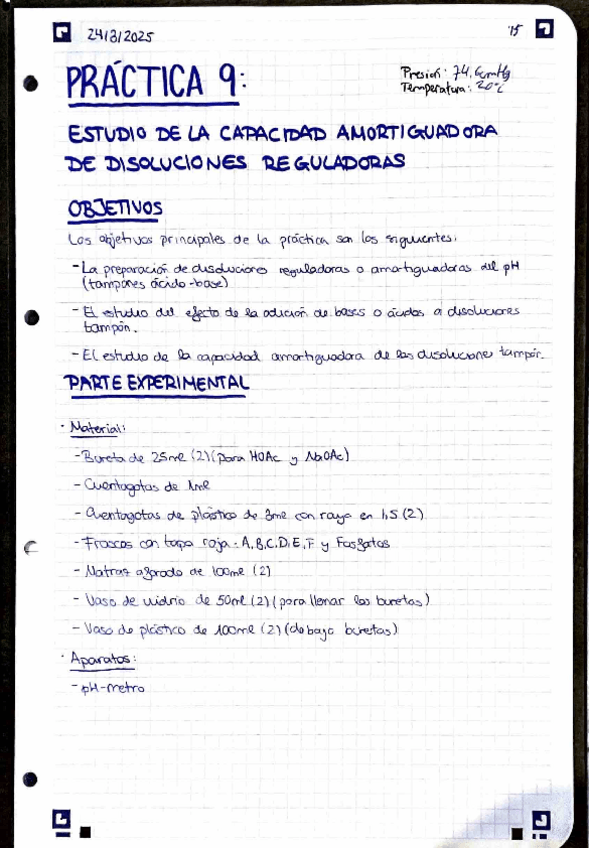 24/3/2025
15
PRÁCTICA 9:
Presión: 74,6cmHg
Temperatura: 20°C
ESTUDIO DE LA CAPACIDAD AMORTIGUADORA
DE DISOLUCIONES REGULADORAS
OBJETIVOS
Los objetivos principales de la práctica son los siguientes:
-La preparación de disoluciones reguladoras o amortiguadoras del pH
(tampones ácido-base)
-El estudio del efecto de la adición de bases o ácidos a disoluciones
tampón.
-El estudio de la capacidad amortiguadora de las disoluciones tampón.
PARTE EXPERIMENTAL
· Material:
-Bureta de 25ml (2)(para HOAc y NaOAc)
-Cuentagotas de 1ml
-Cuentagotas de plástico de 3ml con raya en 1,5 (2)
-Frascos con tapa roja: A,B,C,D,E,F y Fosfatos
-Matraz aforado de 100ml (2)
-Vaso de vidrio de 50ml (2)(para llenar las buretas)
-Vaso de plástico de 100ml (2)(debajo buretas)
· Aparatos:
-pH-metro